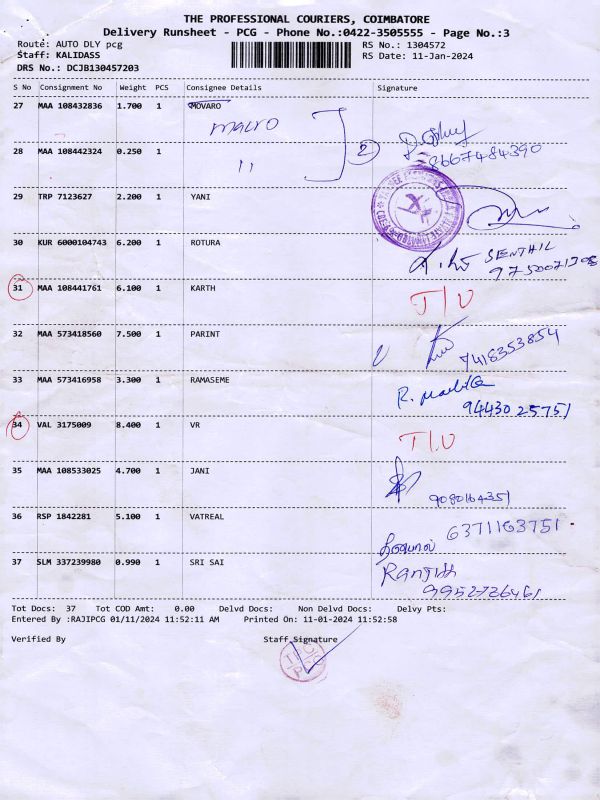 THE PROFESSIONAL COURIERS, COIMBATORE
Delivery Runsheet - PCG - Phone No.:0422-3505555 - Page No.:3
Route: AUTO DLY pcg RS No.: 1304572
Staff: KALIDASS RS Date: 11-Jan-2024
DRS No.: DCJB130457203
S No Consignment No Weight PCS Consignee Details Signature
27 MAA 108432836 1.700 1 MOVARO
macro
28 MAA 108442324 0.250 1 11 2
8667484390
29 TRP 7123627 2.200 1 YANI
30 KUR 6000104743 6.200 1 ROTURA
SENTHIL
9750071308
31 MAA 108441761 6.100 1 KARTH
T/U
32 MAA 573418560 7.500 1 PARINT
7418353854
33 MAA 573416958 3.300 1 RAMASEME
R.
9443025751
34 VAL 3175009 8.400 1 VR
T/U
35 MAA 108533025 4.700 1 JANI
9080164351
36 RSP 1842281 5.100 1 VATREAL
6371163751
37 SLM 337239980 0.990 1 SRI SAI
Ranjith
9952726461
Tot Docs: 37 Tot COD Amt: 0.00 Delvd Docs: Non Delvd Docs: Delvy Pts:
Entered By :RAJIPCG 01/11/2024 11:52:11 AM Printed On: 11-01-2024 11:52:58
Verified By Staff Signature